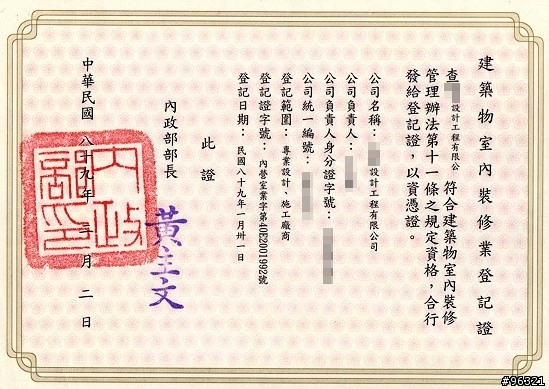 建築物室內裝修業登記證
查 設計工程有限公 符合建築物室內裝修
管理辦法第十一條之規定資格，合行
發給登記證，以資憑證。
公司名稱： 設計工程有限公司
公司負責人：
公司負責人身分證字號：
公司統一編號：
登記範圍：專業設計、施工廠商
登記證字號：內營室業字第40E2001992號
登記日期：民國八十九年一月卅一日
此證
內政部部長
黃主文
內政部印
中華民國八十九年二月二日
#96321